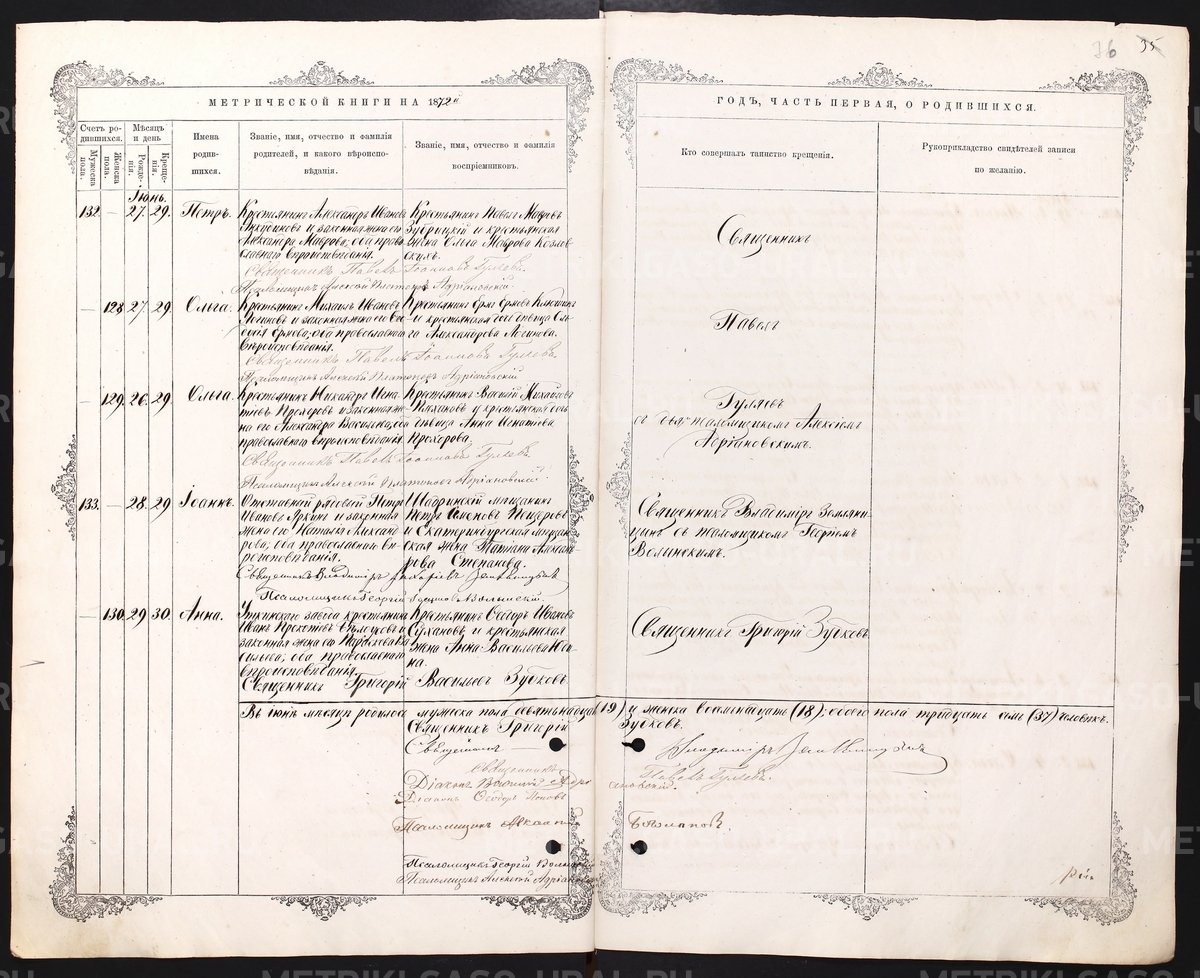 35
36
МЕТРИЧЕСКОЙ КНИГИ НА 1872й
ГОДЪ, ЧАСТЬ ПЕРВАЯ, О РОДИВШИХСЯ.
Счетъ родившихся.
Мужеска пола.
Женска пола.
Мѣсяцъ и день
Рожденія.
Крещенія.
Имена родившихся.
Званіе, имя, отчество и фамилія родителей, и какого вѣроисповѣданія.
Званіе, имя, отчество и фамилія воспріемниковъ.
Кто совершалъ таинство крещенія.
Рукоприкладство свидѣтелей записи по желанію.
Іюнь.
132. — 27. 29. Петръ.
Крестьянинъ Александръ Ивановъ
и законная жена его
Александра Маврова; оба православнаго вѣроисповѣданія.
Крестьянинъ Павелъ Мавровъ
Зубрицкій и крестьянская
жена Ольга Маврова Козловскихъ.
Священникъ Павелъ Іоанновъ Гуляевъ.
Псаломщикъ Алексій Платоновъ Адріановскій.
— 128. 27. 29. Ольга.
Крестьянинъ Михаилъ Ивановъ
Логиновъ и законная жена его
Ермова, оба православнаго
вѣроисповѣданія.
Крестьянинъ Ермъ Ермовъ
и крестьянская дѣвица
Ольга Александрова Логинова.
Священникъ Павелъ Іоанновъ Гуляевъ.
Псаломщикъ Алексій Платоновъ Адріановскій
— 129. 26. 29. Ольга.
Крестьянинъ Никандръ Игнатіевъ Прохоровъ и законная жена его Александра Васильева, оба
православнаго вѣроисповѣданія.
Крестьянинъ Василій Михайловъ
Плехановъ и крестьянская
дѣвица Анна Игнатіева
Прохорова.
Священникъ Павелъ Іоанновъ Гуляевъ.
Псаломщикъ Алексій Платоновъ Адріановскій.
Священникъ
Павелъ
Гуляевъ
съ псаломщикомъ Алексіемъ
Адріановскимъ.
133. — 28. 29 Іоаннъ.
Отставной рядовой Петръ
Ивановъ Яркинъ и законная
жена его Наталья Александрова, оба православнаго вѣроисповѣданія.
Шадринскій мѣщанинъ
Петръ Симоновъ Пещеровъ
и Екатеринбургская мѣщанская жена Татіана Александрова Степанова.
Священникъ Владиміръ Земляницынъ съ псаломщикомъ Георгіемъ
Волынскимъ.
Священникъ Владиміръ Захаріевъ Земляницынъ
Псаломщикъ Георгій Волынскій.
— 130. 29 30. Анна.
Уткинскаго завода крестьянинъ
Иванъ Прокопіевъ и
законная жена его Параскева Васильева; оба православнаго
вѣроисповѣданія.
Крестьянинъ Ѳеодоръ Ивановъ
Сухановъ и крестьянская
жена Анна Васильева
Священникъ Григорій Зубковъ
Священникъ Григорій Васильевъ Зубковъ
Въ іюнѣ мѣсяцѣ родилось мужеска пола девятьнадцать (19) и женска восемьнадцать (18); обоего пола тридцать семь (37) человѣкъ.
Священникъ Григорій Зубковъ.
Священникъ Владиміръ Земляницынъ
Священникъ Павелъ Гуляевъ.
Діаконъ Василій
Діаконъ Ѳеодоръ Поповъ
Псаломщикъ
Псаломщикъ Георгій Волынскій
Псаломщикъ Алексій Адріановскій
METRIKI.GASO-URAL.RU